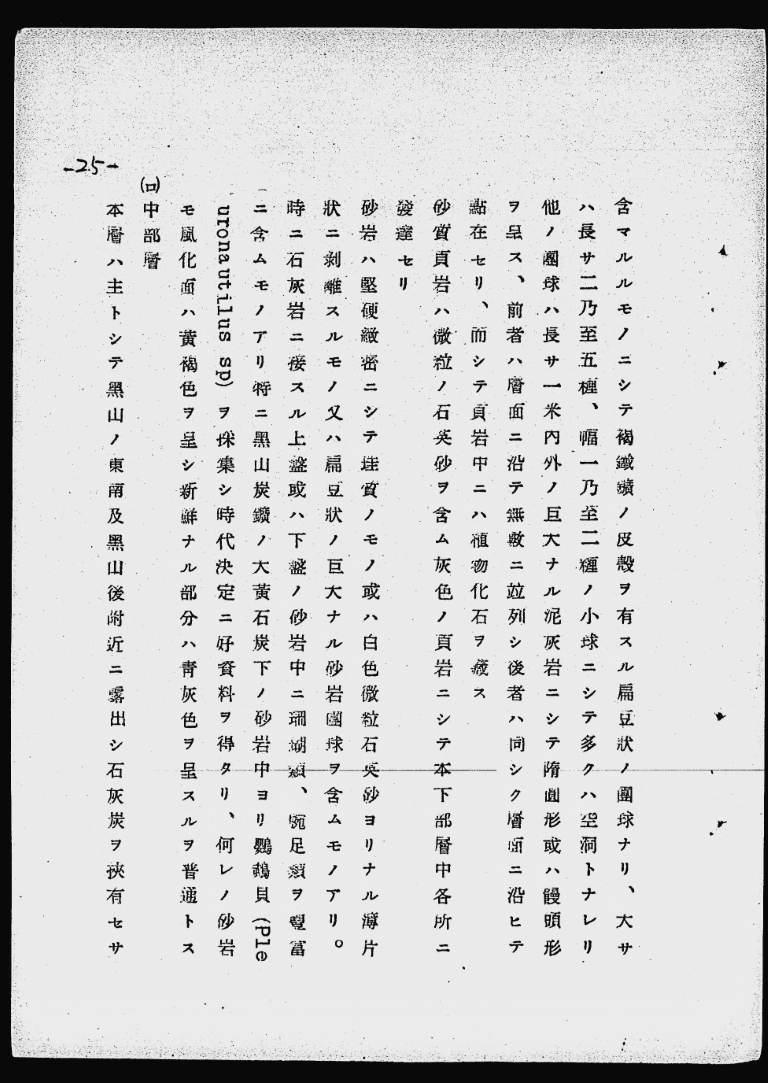 含マルルモノニシテ褐鐵鑛ノ皮殼ヲ有スル扁豆狀ノ團球ナリ、大サ
ハ長サ二乃至五糎、幅一乃至二糎ノ小球ニシテ多クハ空洞トナレリ
他ノ團球ハ長サ一米內外ノ巨大ナル泥灰岩ニシテ隋圓形或ハ饅頭形
ヲ呈ス、前者ハ層面ニ沿テ無數ニ竝列シ後者ハ同シク層面ニ沿ヒテ
點在セリ、而シテ頁岩中ニハ植物化石ヲ藏ス
砂質頁岩ハ微粒ノ石英砂ヲ含ム灰色ノ頁岩ニシテ本下部層中各所ニ
發達セリ
砂岩ハ堅硬緻密ニシテ珪質ノモノ或ハ白色微粒石英砂ヨリナル薄片
狀ニ剝離スルモノ又ハ扁豆狀ノ巨大ナル砂岩團球ヲ含ムモノアリ。
時ニ石灰岩ニ接スル上盤或ハ下盤ノ砂岩中ニ珊瑚類、腕足類ヲ豐富
ニ含ムモノアリ特ニ黑山炭鑛ノ大黃石炭下ノ砂岩中ヨリ鸚鵡貝(Ple
uronautilus sp)ヲ採集シ時代決定ニ好資料ヲ得タリ、何レノ砂岩
モ風化面ハ黃褐色ヲ呈シ新鮮ナル部分ハ靑灰色ヲ呈スルヲ普通トス
(ロ)中部層
本層ハ主トシテ黑山ノ東南及黑山後附近ニ露出シ石灰炭ヲ狹有セサ
-25-